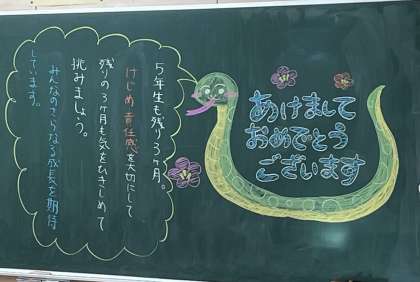 あけまして
おめでとう
ございます
5年生も残り3ヶ月。
けじめ 責任感を大切にして
残りの3ヶ月も気をひきしめて
挑みましょう。
みんなのさらなる成長を期待
しています。